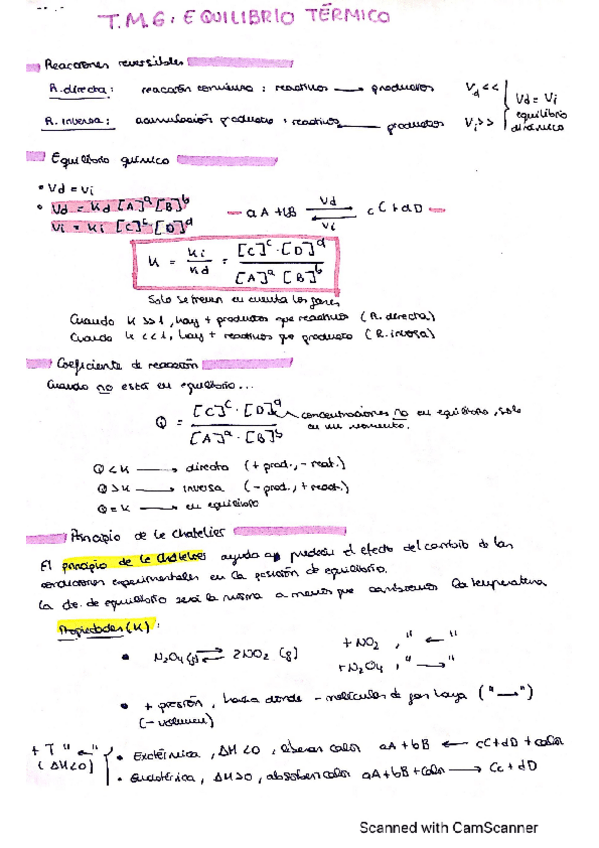 T.M.6: EQUILIBRIO TÉRMICO
Reacciones reversibles
R.directa: reacción comienza: reactivos → productos Vd <<
Vd = Vi
equilibrio
dinámico
R. inversa: acumulación producto: reactivos productos Vi >>
Equilibrio químico
• Vd = Vi
• Vd = Kd [A]ᵃ[B]ᵇ
Vi = Ki [C]ᶜ·[D]ᵈ
aA + bB ⇄ cC + dD
Vd
Vi
K = Ki/Kd = [C]ᶜ·[D]ᵈ / [A]ᵃ[B]ᵇ
Solo se tienen en cuenta los gases
Cuando K >> 1, hay + productos que reactivos (R. directa)
Cuando K << 1, hay + reactivos que producto (R. inversa)
Coeficiente de reacción
Cuando no está en equilibrio...
Q = [C]ᶜ·[D]ᵈ / [A]ᵃ·[B]ᵇ
concentraciones no en equilibrio, solo
en un momento.
Q < K → directa (+ prod., - reat.)
Q > K → inversa (- prod., + react.)
Q = K → en equilibrio
Principio de le Chatelier
El principio de le Chatelier ayuda a predecir el efecto del cambio de las
condiciones experimentales en la posición de equilibrio.
la de equilibrio será la misma a menos que cambiemos la temperatura
Propiedades (K):
• N₂O₄(g) ⇄ 2NO₂ (g)
+ NO₂, "←"
+ N₂O₄, "→"
• + presión, hacia donde - moléculas de gas haya ("→")
(- volumen)
+ T "←"
(ΔH<0)
• Exotérmica, ΔH<0, liberan calor aA + bB ← cC + dD + calor
• Endotérmica, ΔH>0, absorben calor aA + bB + calor → Cc + dD
Scanned with CamScanner